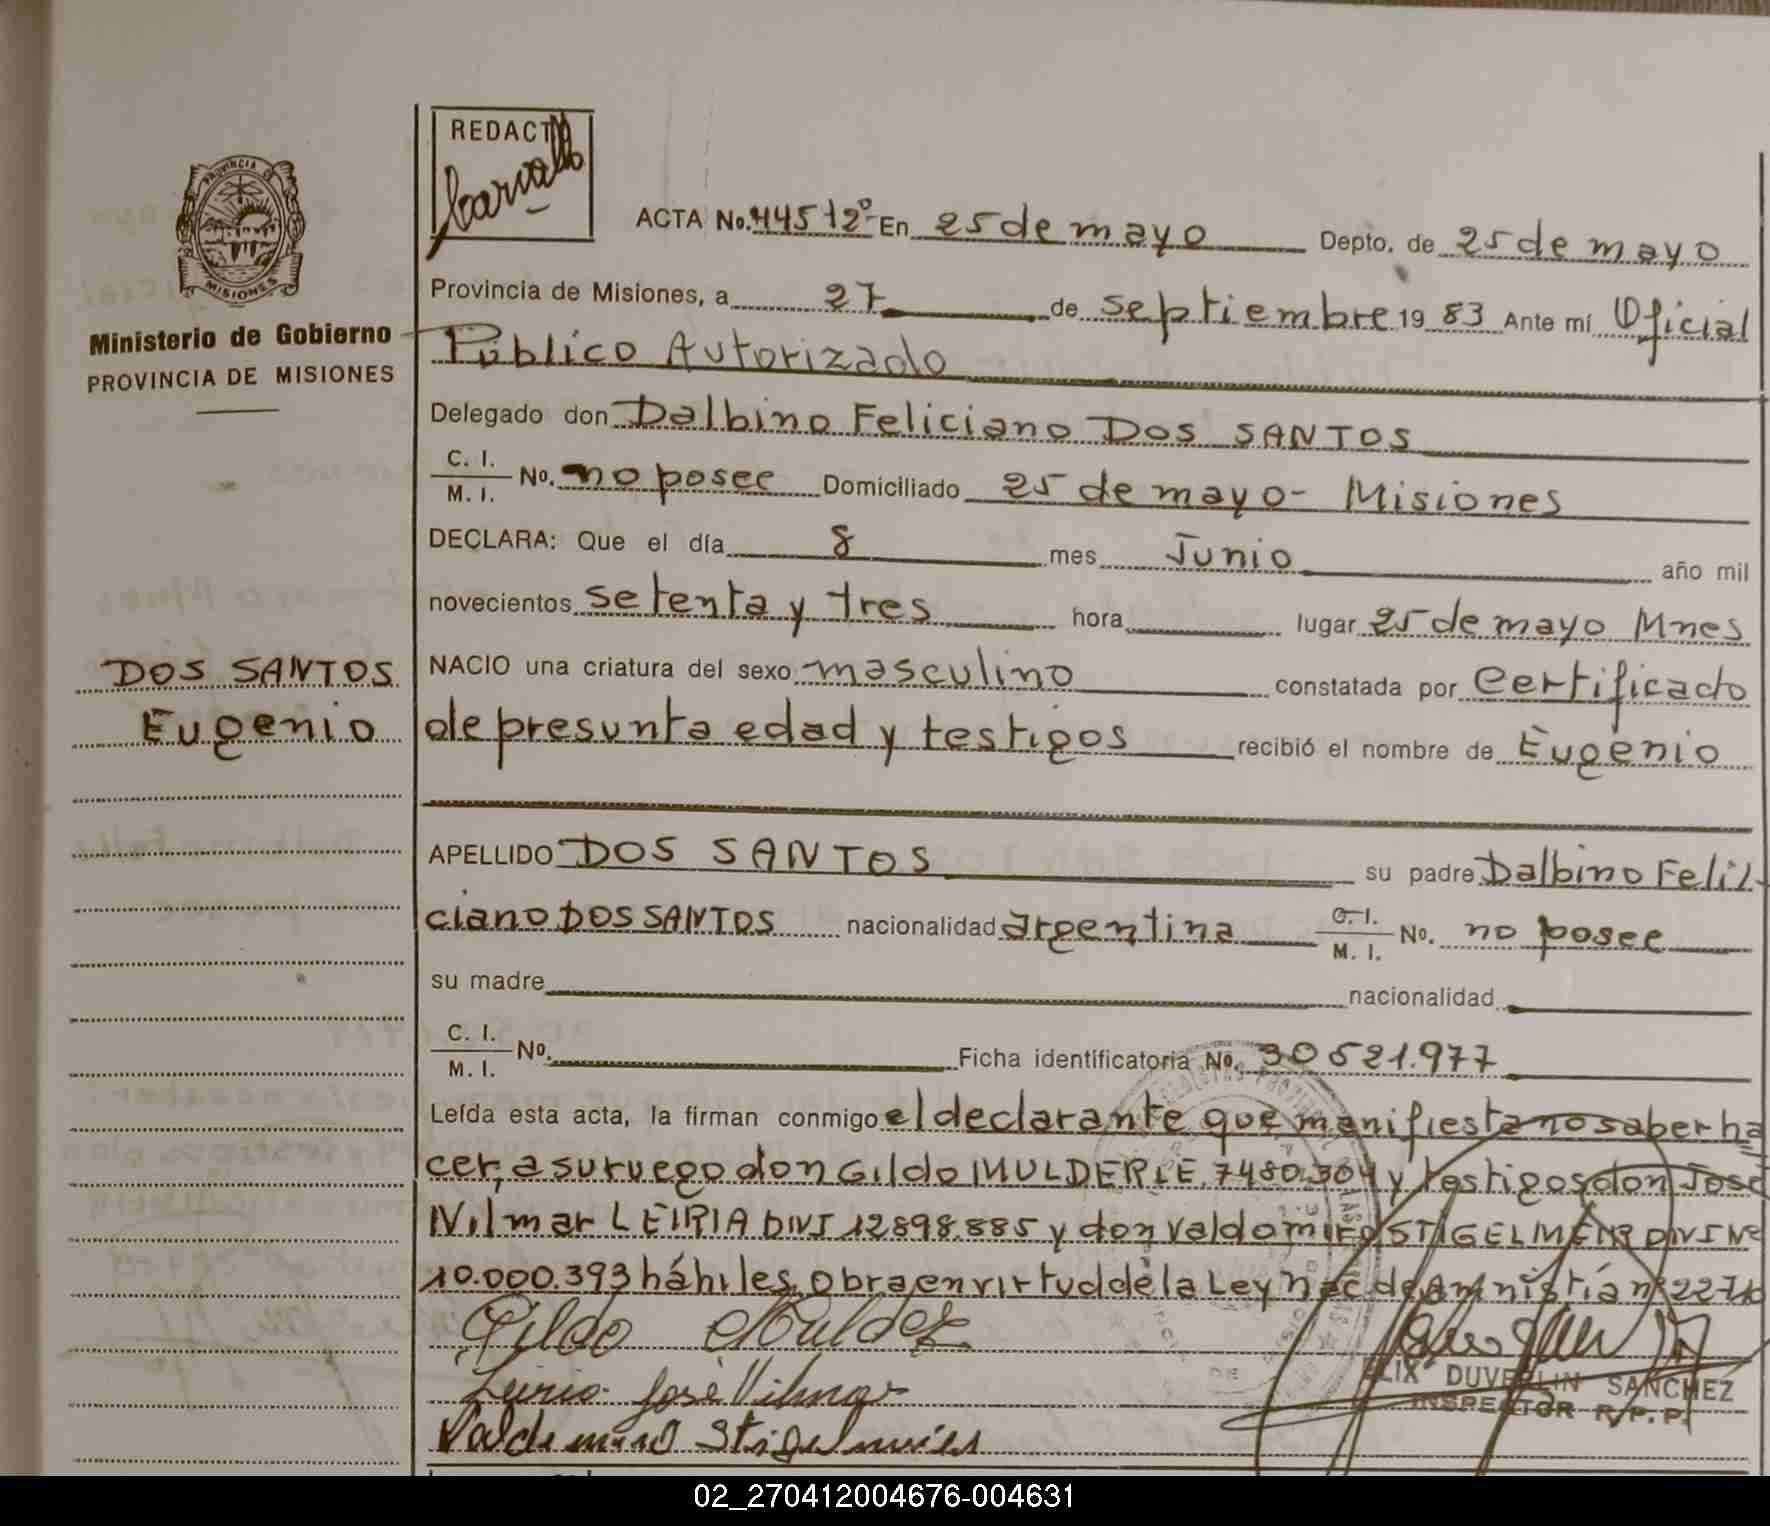 REDACTO
Carvallo
PROVINCIA DE
MISIONES
Ministerio de Gobierno
PROVINCIA DE MISIONES
ACTA No. 44512º En 25 de mayo Depto. de 25 de mayo
Provincia de Misiones, a 27 de septiembre 19 83 Ante mí Oficial
Público Autorizado
Delegado don Dalbino Feliciano DOS SANTOS
C. I. / M. I. No. no posee Domiciliado 25 de mayo - Misiones
DECLARA: Que el día 8 mes Junio año mil
novecientos setenta y tres hora lugar 25 de mayo Mnes
DOS SANTOS
Eugenio
NACIO una criatura del sexo masculino constatada por Certificado
de presunta edad y testigos recibió el nombre de Eugenio
APELLIDO DOS SANTOS su padre Dalbino Feli
ciano DOS SANTOS nacionalidad argentina C. I. / M. I. No. no posee
su madre nacionalidad
C. I. / M. I. No. Ficha identificatoria No. 30521.977
Leída esta acta, la firman conmigo el declarante que manifiesta no saber ha
cer, a su ruego don Gildo MULDER LE. 7480.304 y testigos don José
Vilmar LEIRIA DNI 12898.885 y don Valdomiro DNI Nº
10.000.393 hábiles. Obra en virtud de la Ley nac de Amnistían
Gildo Mulder
Leiria José Vilmar
Valdomiro
ELIX DUVERLIN SANCHEZ
INSPECTOR R. P. P.
02_270412004676-004631